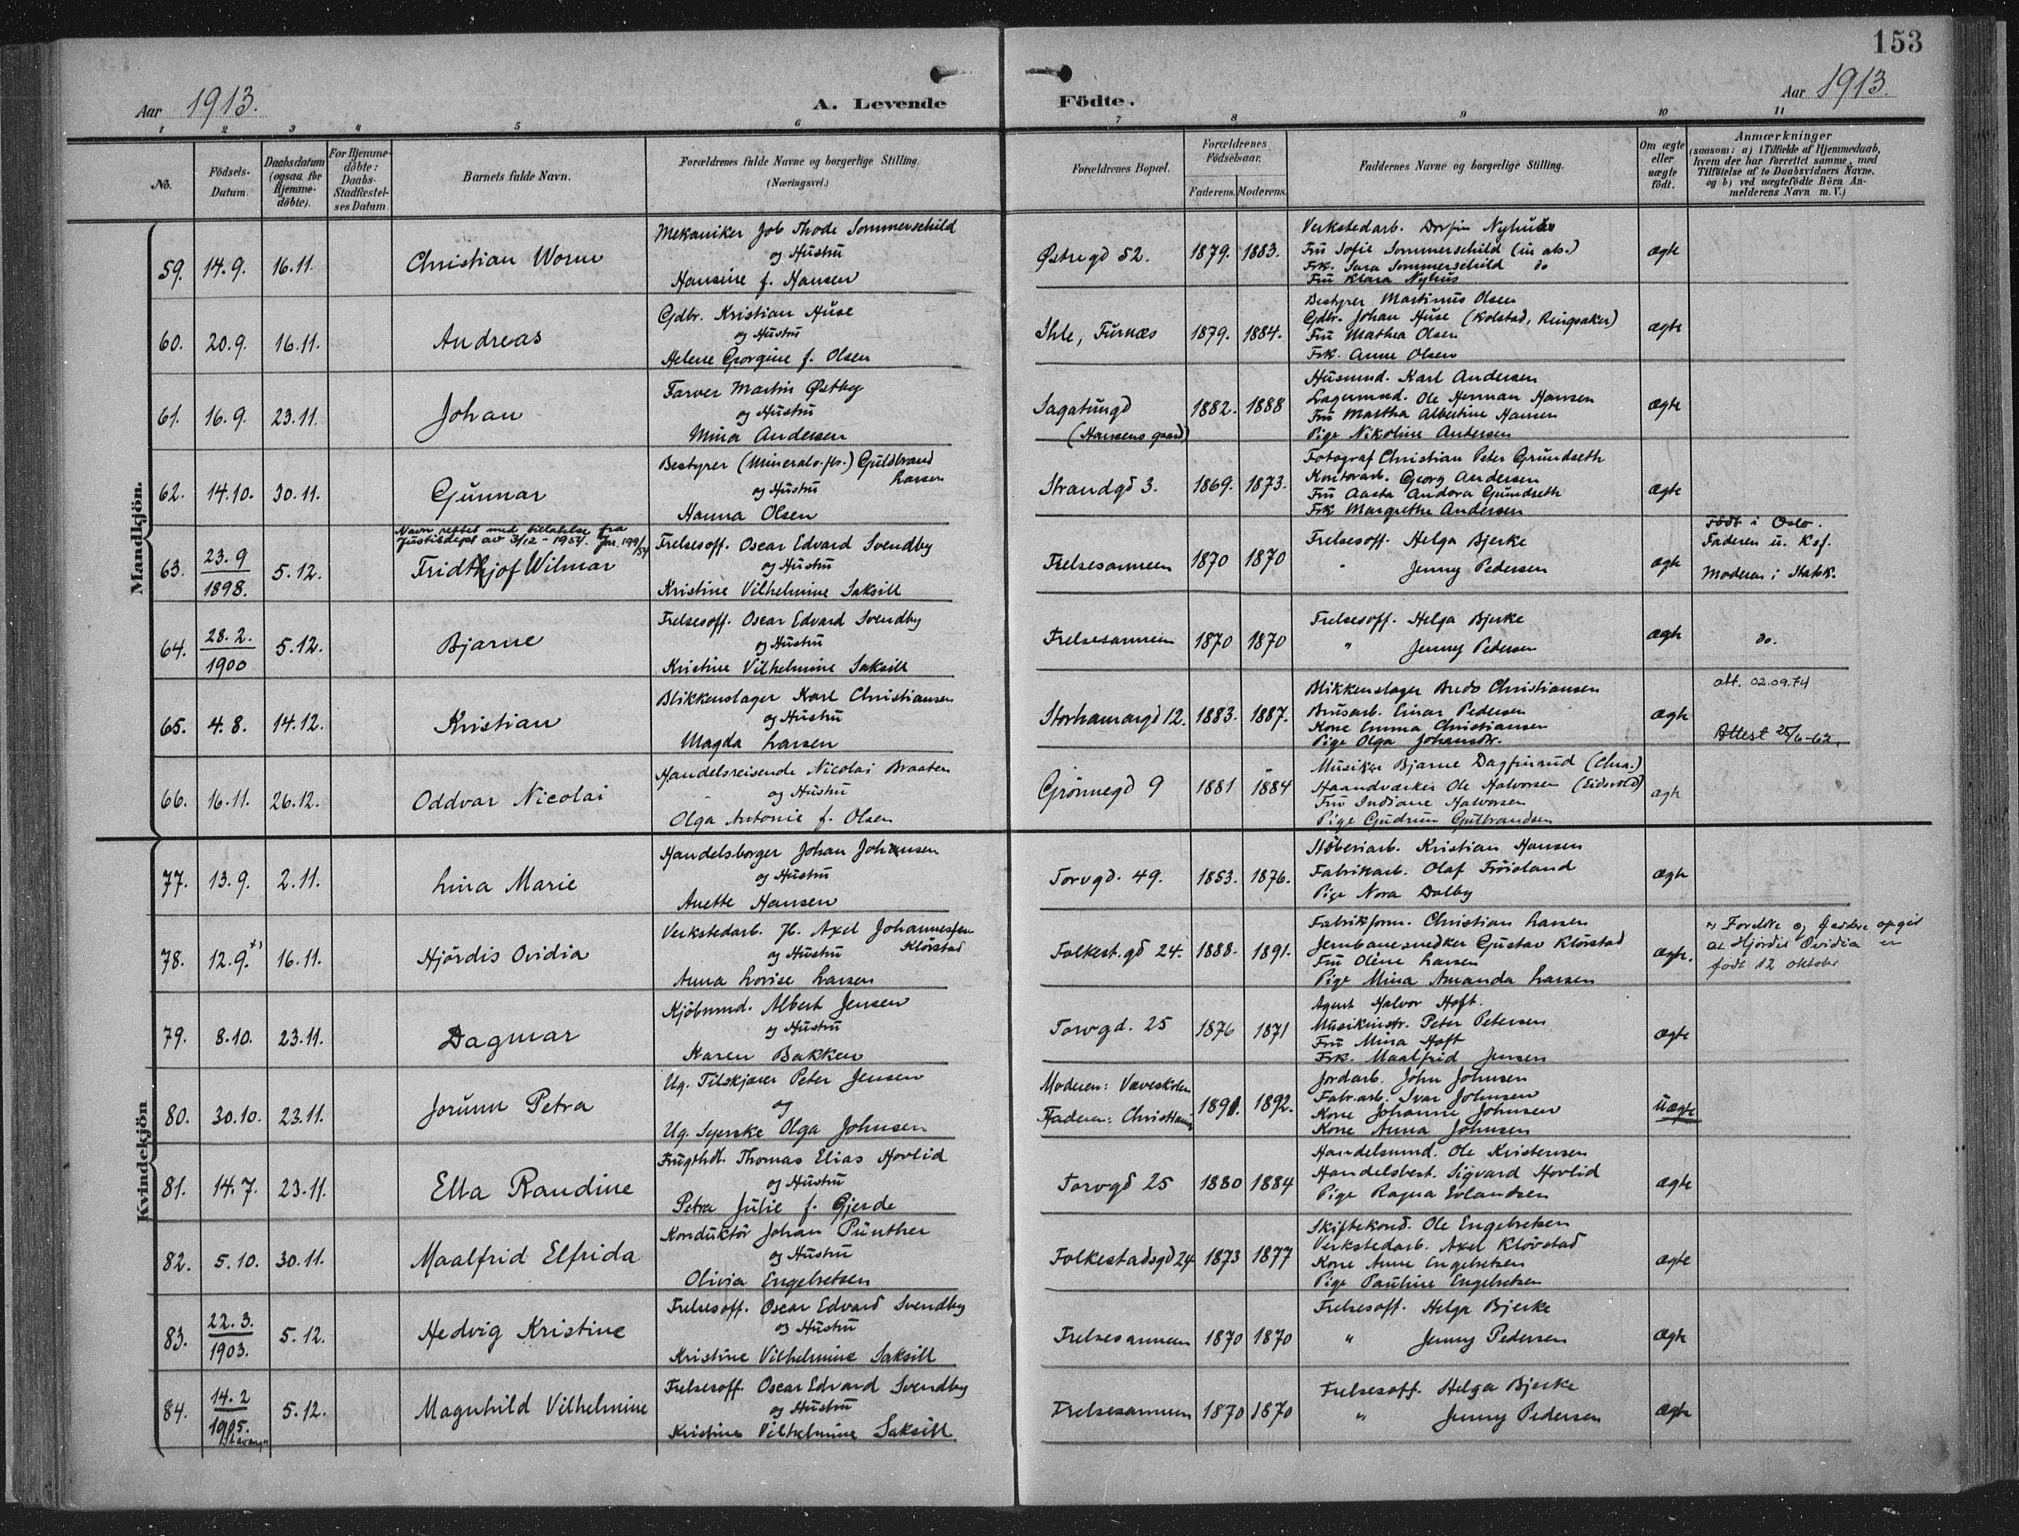 153
Aar 1913.
A. Levende
Födte.
Aar 1913.
1 2 3 4 5 6 7 8 9 10 11
No.
Födsels-Datum.
Daabsdatum (ogsaa for Hjemme-döbte).
For Hjemme-döbte: Daabs-Stadfæstel-ses Datum.
Barnets fulde Navn.
Forældrenes fulde Navne og borgerlige Stilling. (Næringsvei.)
Forældrenes Bopæl.
Forældrenes Födselsaar.
Faderens. Moderens.
Faddernes Navne og borgerlige Stilling.
Om ægte eller uægte födt.
Anmærkninger
(saasom: a) i Tilfælde af Hjemmedaab, hvem der har forrettet samme, med Tilföielse af to Daabsvidners Navne, og b) ved uægtefödte Börn An-melderens Navn m. V.)
Mandkjön.
59. 14.9. 16.11. Christian Worm
Mekaniker Job Thode Sommerschild
og Hustru
Hansine f. Hansen
Østregd 52. 1879. 1883.
Verkstedarb. Dorfin Nyhus
Fru Sofie Sommerschild (in abs.)
Frk. Sara Sommerschild do
Fru Klara Nyhus
ægte
60. 20.9. 16.11. Andreas
Gdbr. Kristian Huse
og Hustru
Helene Georgine f. Olsen
Ihle, Furnæs 1879. 1884.
Bestyrer Martinus Olsen
Gdbr. Johan Huse (Kolstad, Ringsaker)
Fru Mathea Olsen
Frk. Anne Olsen
ægte
61. 16.9. 23.11. Johan
Farver Martin Østby
og Hustru
Mina Andersen
Sagatungd
(Hansens gaard)
1882. 1888
Husmnd. Karl Andersen
Lagermnd. Ole Herman Hansen
Fru Martha Albertine Hansen
Pige Nikoline Andersen
ægte
62. 14.10. 30.11. Gunnar
Bestyrer (Mineralv.fbr.) Guldbrand
Larsen
og Hustru
Hanna Olsen
Strandgd 3. 1869. 1873.
Fotograf Christian Peter Grundseth
Kontorarb. Georg Andersen
Fru Aasta Andora Grundseth
Frk Margrethe Andersen
ægte
Navn rettet med tillatelse fra
Justisdept av 3/12 - 1954. Jnr. 199/54
63. 23.9 1898. 5.12. Fridthjof Wilmar
Frelsesoff. Oscar Edvard Svendby
og Hustru
Kristine Vilhelmine Saksill
Frelsesarmeen 1870 1870
Frelsesoff. Helga Bjerke
" Jenny Pedersen
ægte
Født i Oslo.
Faderen u. Ksf.
Moderen i Statsk.
64. 28.2. 1900 5.12. Bjarne
Frelsesoff. Oscar Edvard Svendby
og Hustru
Kristine Vilhelmine Saksill
Frelsesarmeen 1870 1870
Frelsesoff. Helga Bjerke
" Jenny Pedersen
ægte
do.
65. 4.8. 14.12. Kristian
Blikkenslager Karl Christiansen
og Hustru
Magda Larsen
Storhamargd 12. 1883. 1887.
Blikkenslager Bredo Christiansen
Brusarb. Einar Pedersen
Kone Emma Christiansen
Pige Olga Johansdr.
ægte
att. 02.09.74
Attest 25/6-62.
66. 16.11. 26.12. Oddvar Nicolai
Handelsreisende Nicolai Braaten
og Hustru
Olga Antonie f. Olsen
Grønnegd 9 1881 1884
Musiker Bjarne Dagfinrud (Chra.)
Haandværker Ole Halvorsen (Eidsvold)
Fru Indiane Halvorsen
Pige Gudrun Gulbrandsen
ægte
Kvindekjön
77. 13.9. 2.11. Lina Marie
Handelsborger Johan Johansen
og Hustru
Anette Hansen
Torvgd. 49. 1853. 1876.
Støberiarb. Kristian Hansen
Fabrikarb. Olaf Frøisland
Pige Nora Dalby
ægte
78. 12.9. x) 16.11. Hjørdis Ovidia
Verkstedarb. H. Axel Johannessen
Kløvstad
og Hustru
Anna Lovise Larsen
Folkest.gd 24. 1888. 1891.
Fabrikform. Christian Larsen
Jernbanesnedker Gustav Kløvstad
Fru Oline Larsen
Pige Mina Amanda Larsen
ægte.
x) Foreldre og faddere opgir
at Hjørdis Ovidia er
født 12 oktober
79. 8.10. 23.11. Dagmar
Kjøbmnd. Albert Jensen
og Hustru
Karen Bakken
Torvgd. 25 1876 1871
Agent Halvor Hoft.
Musikinstr. Peter Petersen
Fru Mina Hoft
Frk. Maalfrid Jensen
ægte
80. 30.10. 23.11. Jorunn Petra
Ug. Tilskjærer Peter Jensen
og
Ug. Syerske Olga Johnsen
Moderen: Væveskolen
Faderen: Christiania
1891. 1892.
Jordarb. John Johnsen
Fabr.arb. Ivar Johnsen
Kone Johanne Johnsen
Kone Anna Johnsen
uægte
81. 14.7. 23.11. Ella Randine
Frugthdl. Thomas Elias Hovlid
og Hustru
Petra Julie f. Gjerde
Torvgd 25 1880 1884
Handelsmnd. Ole Kristensen
Handelsbest. Sigvard Hovlid
Pige Ragna Evlandsen
ægte
82. 5.10. 30.11. Maalfrid Elfrida
Konduktør Johan Pünther
og Hustru
Olivia Engebretsen
Folkestadsgd 24 1873 1877
Skiftekond. Ole Engebretsen
Verkstedarb. Axel Kløvstad
Kone Anne Engebretsen
Pige Pauline Engebretsen
ægte
83. 22.3. 1903. 5.12. Hedvig Kristine
Frelsesoff. Oscar Edvard Svendby
og Hustru
Kristine Vilhelmine Saksill
Frelsesarmeen 1870 1870
Frelsesoff. Helga Bjerke
" Jenny Pedersen
ægte
84. 14.2 1905. Stavanger 5.12. Magnhild Vilhelmine
Frelsesoff. Oscar Edvard Svendby
og Hustru
Kristine Vilhelmine Saksill
Frelsesarmeen 1870 1870
Frelsesoff. Helga Bjerke
" Jenny Pedersen
ægte